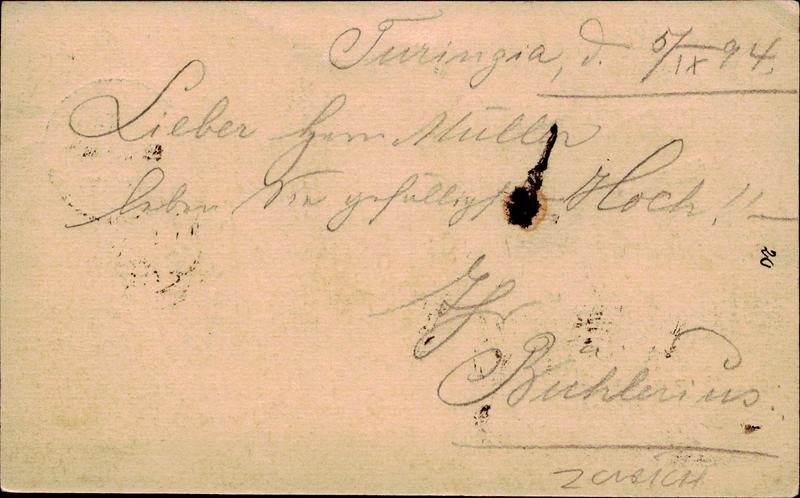 Turingia, d. 5/IX 94.
Lieber Herr Müller
leben Sie gefälligst Hoch!!
20
Ihr
Buhlerius